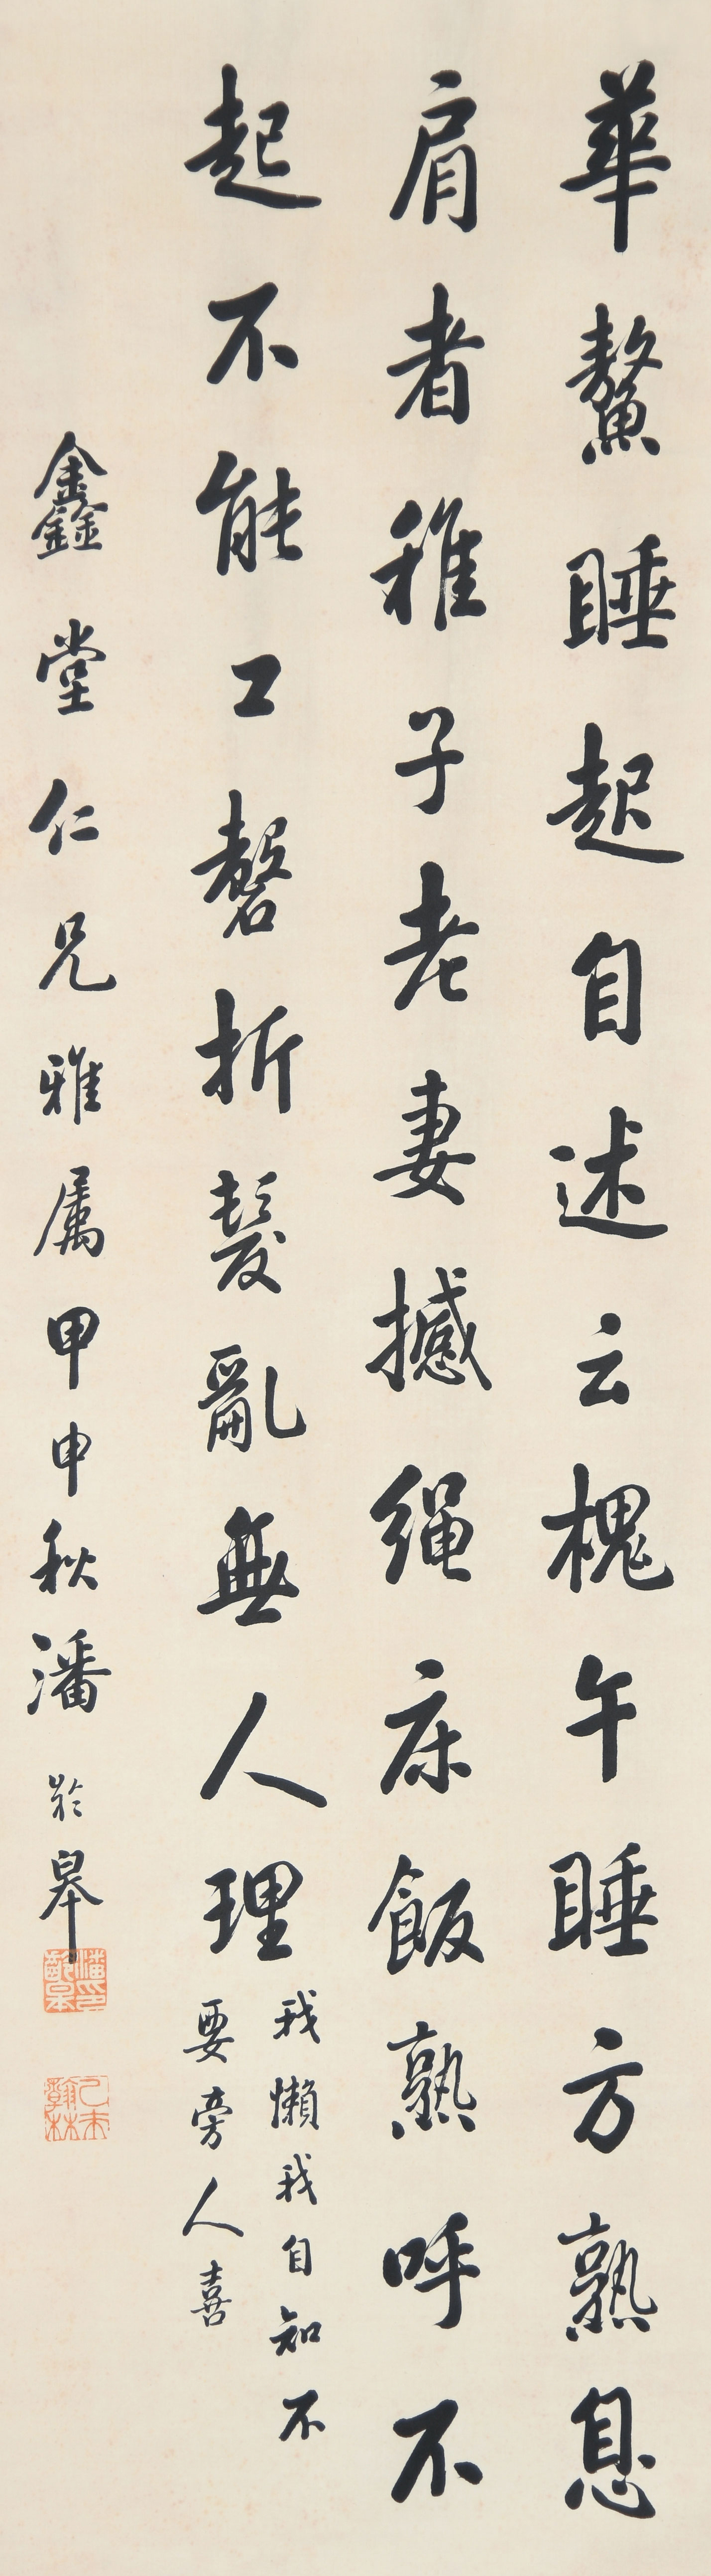 華鰲睡起自述云槐午睡方熟息
肩者稚子老妻撼绳床飯熟呼不
起不能工磬折髮亂無人理
我懶我自知不
要旁人喜
鑫堂仁兄雅属甲申秋潘齡皋
潘印齡皋
乙未翰林